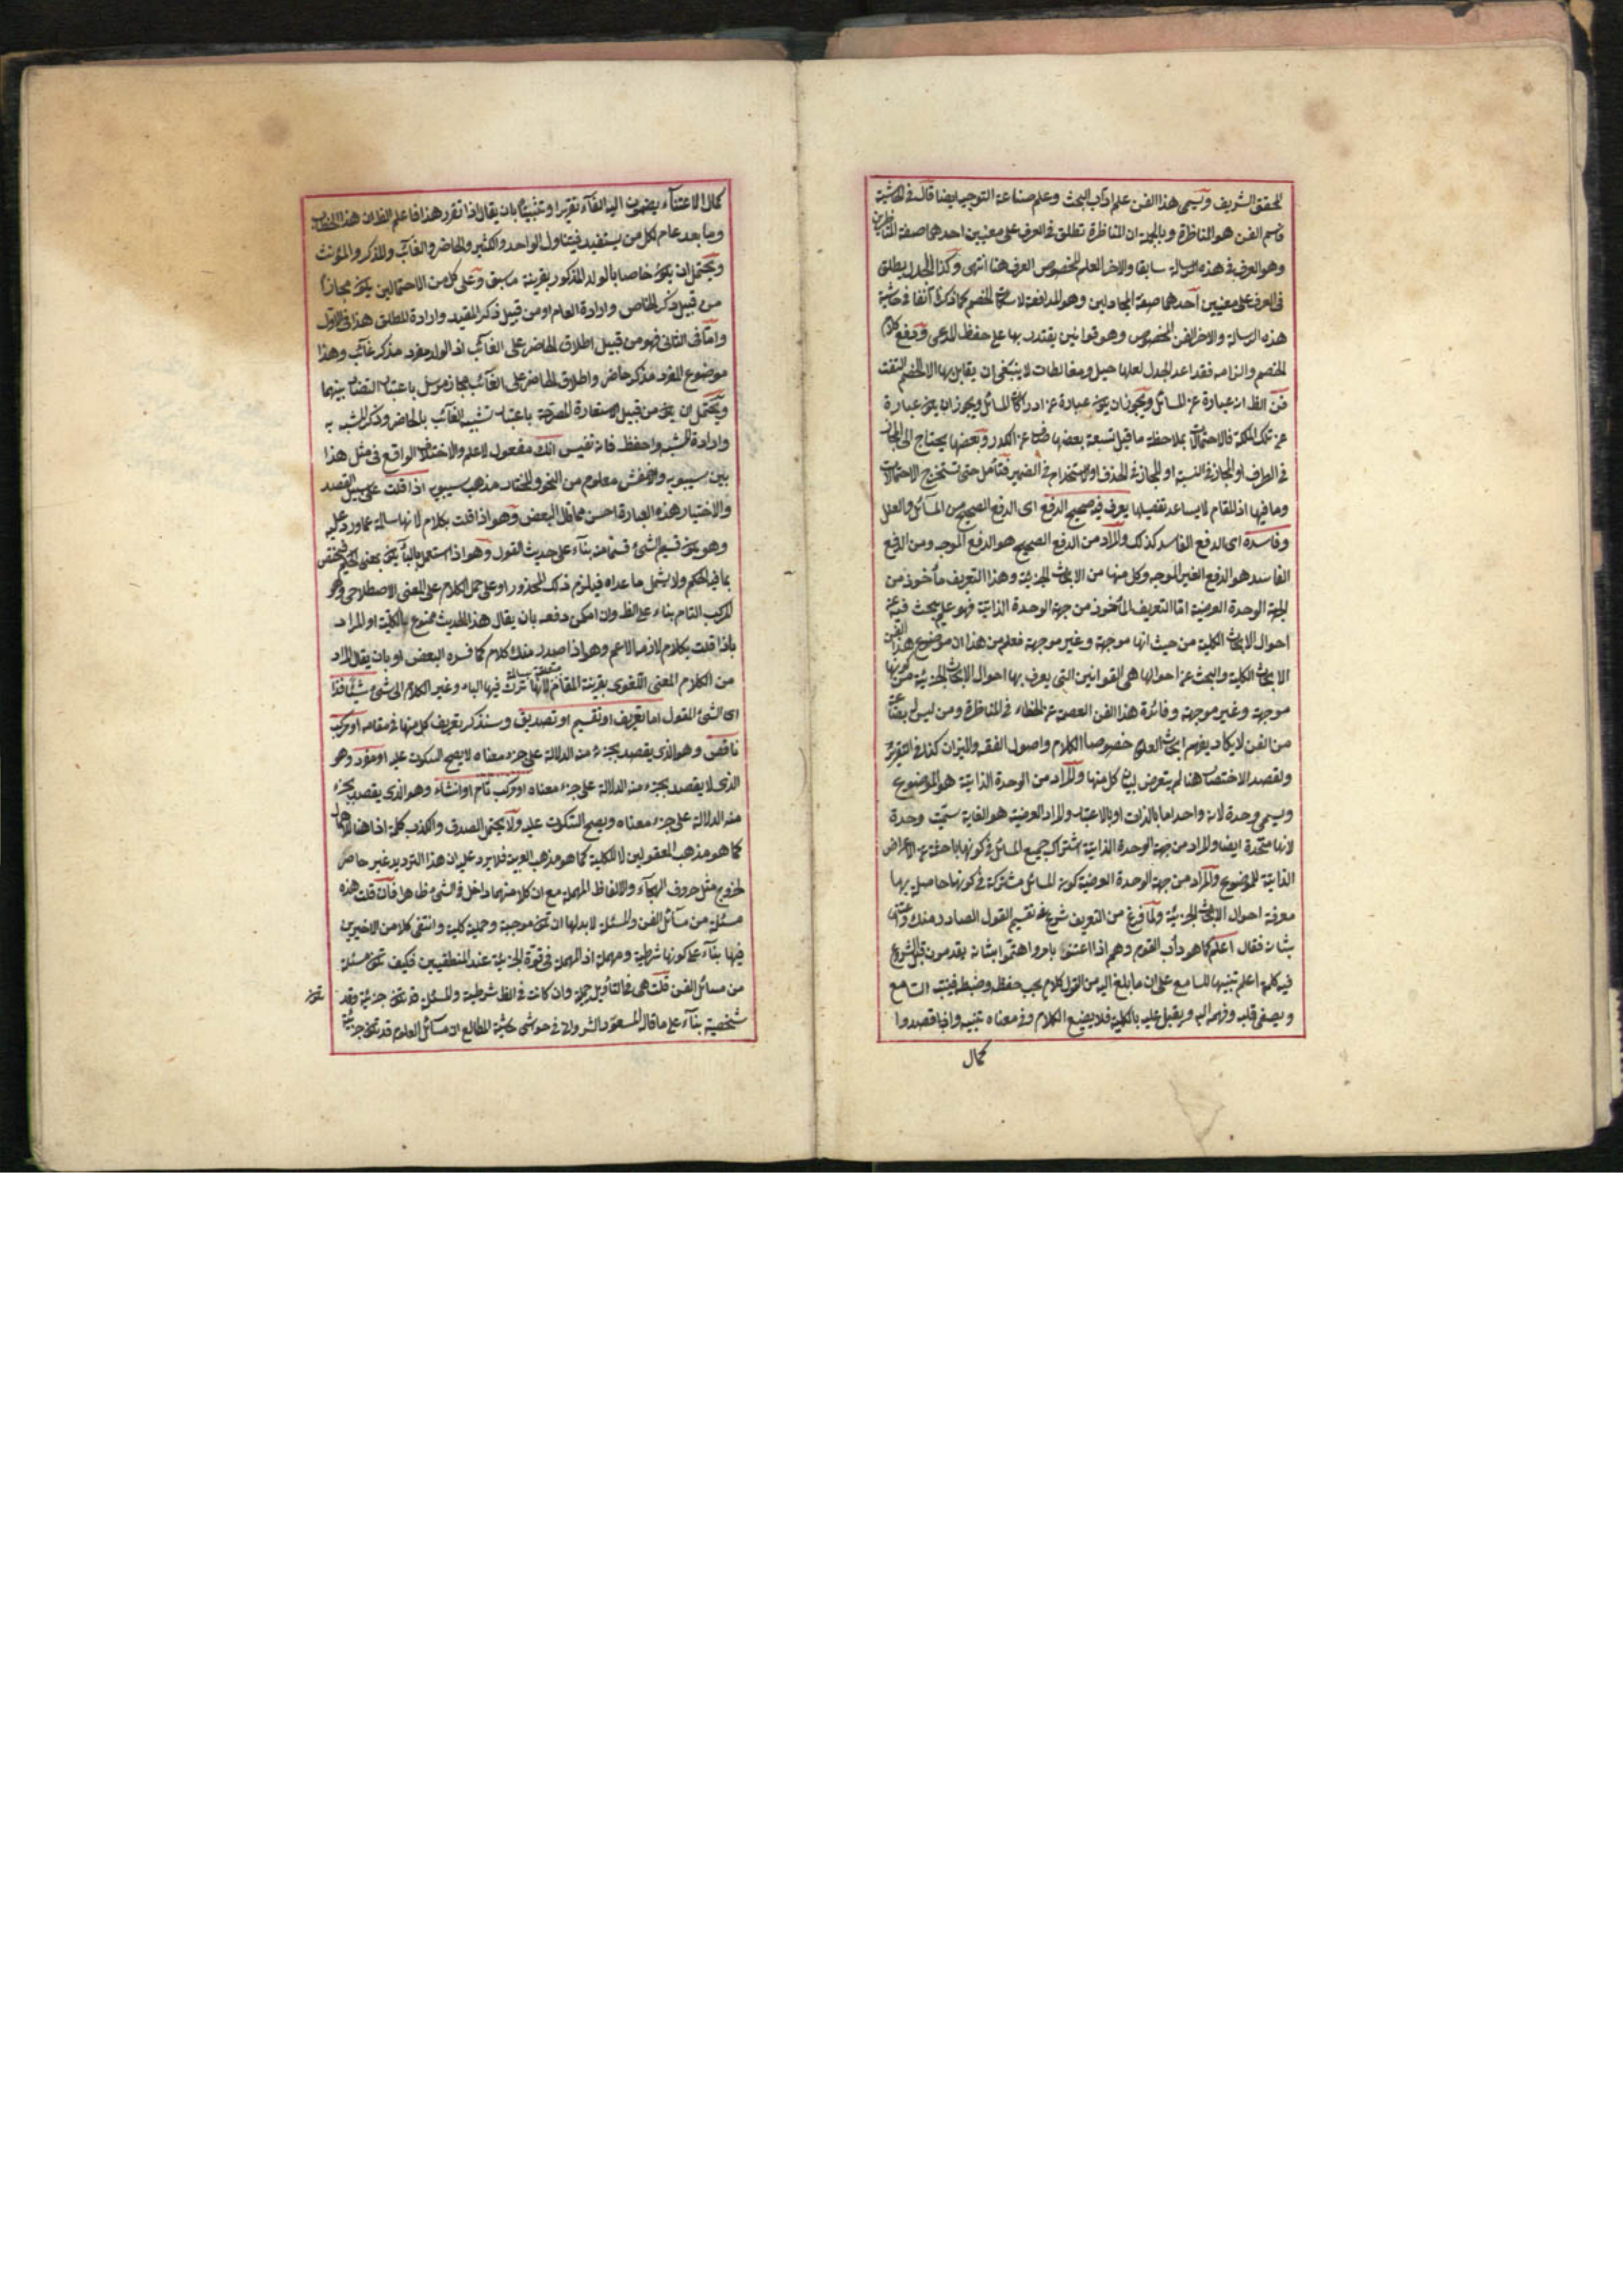 المحقق الشريف ويسمى هذا الفن علم آداب البحث وعلم صناعة التوجيه ايضا قال في الحاشية
قاسم الفن هو المناظرة وبالجملة ان المناظرة تطلق في العرف على معنيين احدهما صفة المناظرين
وهو العرف في هذه الرسالة سابقا والاخر العلم المخصوص المعرف هنا انتهى وكذا الجدل يطلق
في العرف على معنيين احدهما صفة المجادلين وهو المدافعة لاسكات الخصم كما ذكره آنفا في حاشية
هذه الرسالة والاخر الفن المخصوص وهو قوانين يقتدر بها على حفظ المدعى ودفع كلام
الخصم والزامه فقواعد الجدل لعلها حيل ومغالطات لا ينبغي ان يقابل بها الا الخصم المتعنت
فن الظ انه عبارة عن المسائل ويجوز ان يكون عبارة عن ادراك المسائل ويجوز ان يكون عبارة
عن تلك الملكة فالاحتمالات بملاحظة ما قبل تسعة بعضها صاف عن الكدر وبعضها يحتاج الى المجاز
في الطرف او المجاز في النسبة او المجاز في الحذف او الاستخدام في الضمير فتأمل حتى تستخرج الاحتمالات
وما فيها اذ المقام لا يساعد تفصيلها يعرف فيه صحيح الدفع اى الدفع الصحيح من المسائل والعلل
وفاسده اى الدفع الفاسد كذلك والمراد من الدفع الصحيح هو الدفع الموجه ومن الدفع
الفاسد هو الدفع الغير الموجه وكل منها من الابحاث الجزئية وهذا التعريف مأخوذ من
الجهة الوحدة العرضية اما التعريف المأخوذ من جهة الوحدة الذاتية فهو علم يبحث فيه عن
احوال الابحاث الكلية من حيث انها موجهة وغير موجهة فعلم من هذا ان موضوع هذا الفن
الابحاث الكلية والبحث عن احوالها هي القوانين التي يعرف بها احوال الابحاث الجزئية من كونها
موجهة وغير موجهة وفائدة هذا الفن العصمة عن الخطاء في المناظرة ومن ليس له بضاعة
من الفن لا يكاد يفهم ابحاث العلوم خصوصا الكلام واصول الفقه والميزان كذا في التقرير
ولقصد الاختصار هنا لم يتعرض بيان كل منها والمراد من الوحدة الذاتية هو الموضوع
ويسمى وحدة لانه واحد اما بالذات او بالاعتبار والمراد العرضية هو الغاية سميت وحدة
لانها متحدة ايضا والمراد من جهة الوحدة الذاتية اشتراك جميع المسائل في كونها باحثة عن الاعراض
الذاتية للموضوع والمراد من جهة الوحدة العرضية كون المسائل مشتركة في كونها حاصلة بها
معرفة احوال الابحاث الجزئية ولما فرغ من التعريف شرع في تقسيم القول الصادر منك واعتنى
بشانه فقال اعلم كما هو دأب القوم وهم اذا اعتنوا بامر واهتموا بشانه يقدمون قبل الشروع
فيه كلمة اعلم تنبيها للسامع على ان ما بلغ اليه من القول كلام يجب حفظه وضبطه فينبه السامع
ويصفى قلبه وفهمه اليه ويقبل عليه بالكلية فلا يضيع الكلام وفي معناه تنبيه وانما قصدوا
كمال
كمال الاعتنآء يضمون اليه الفآء تقريرا وتثبيتا بان يقال اذا تقرر هذا فاعلم الظ ان هذا الخطاب
وما بعد عام لكل من يستفيد فيتناول الواحد والكثير والحاضر والغائب والمذكر والمؤنث
ويحتمل ان يكون خاصا بالولد المذكور بقرينة ما سبق وعلى كل من الاحتمالين يكون مجازا
من قبيل ذكر الخاص وارادة العام او من قبيل ذكر المقيد وارادة المطلق هذا في الاول
واما في الثاني فهو من قبيل اطلاق الحاضر على الغائب اذ الولد مفرد مذكر غائب وهذا
موضوع المفرد مذكر حاضر واطلاق الحاضر على الغائب مجاز مرسل باعتبار التضاد بينهما
ويحتمل ان يكون من قبيل الاستعارة المصرحة باعتبار تشبيه الغائب بالحاضر وذكر المشبه به
وارادة المشبه واحفظ فانه نفيس انك مفعول لاعلم والاختلاف الواقع في مثل هذا
بين سيبويه والاخفش معلوم من النحو والمختار مذهب سيبويه اذا قلت على سبيل القصد
والاختيار هذه العبارة احسن مما قال البعض وهو اذا قلت بكلام لانها سالمة عما ورد عليه
وهو يكون قسيم الشئ قسما منه بناء على حديث القول وهو اذا استعمل بالباء يكون بمعنى الحكم فيختص
بما فيه الحكم ولا يشمل ما عداه فيلزم ذلك المحذور او على حمل الكلام على المعنى الاصطلاحى وهو
المركب التام بناء على الظ وان امكن دفعه بان يقال هذا الحديث ممنوع بالكلية او المراد
باذا قلت بكلام لازمه الاعم وهو اذا صدر منك كلام كما فسره البعض او بان يقال المراد
من الكلام المعنى اللغوى بقرينة المقام لانها تركت فيها الباء وغير الكلام الى شئ شيئا فذا
اى الشئ المقول اما تعريف او تقسيم او تصديق وسنذكر تعريف كل منها في مقامه او مركب
ناقص وهو الذى يقصد بجزء منه الدلالة على جزء معناه لا يصح السكوت عليه او مفرد وهو
الذى لا يقصد بجزء منه الدلالة على جزء معناه او مركب تام او انشاء وهو الذى يقصد بجزء
منه الدلالة على جزء معناه ويصح السكوت عليه ولا يحتمل الصدق والكذب كلمة اذا هنا للاهمال
كما هو مذهب المعقوليين لا للكلية كما هو مذهب العربية فلا يرد عليه ان هذا الترديد غير حاصر
لخروج مثل حروف الهجآء والالفاظ المهملة مع ان كلا منهما داخل في الشئ وظاهر فان قلت هذه
مسئلة من مسائل الفن والمسئلة لا بد لها ان تكون موجبة وحملية كلية وانتفى كلا من الاخيرين
فيها بناء على كونها شرطية ومهملة اذ المهملة في قوة الجزئية عند المنطقيين فكيف تكون مسئلة
من مسائل الفن قلت هي في التأويل حملية وان كانت في الظ شرطية والمسئلة قد تكون جزئية وقد
شخصية بناء على ما قاله المسعود الشرواني في حواشى حاشية المطالع ان مسائل العلوم قد تكون جزئية
تكون